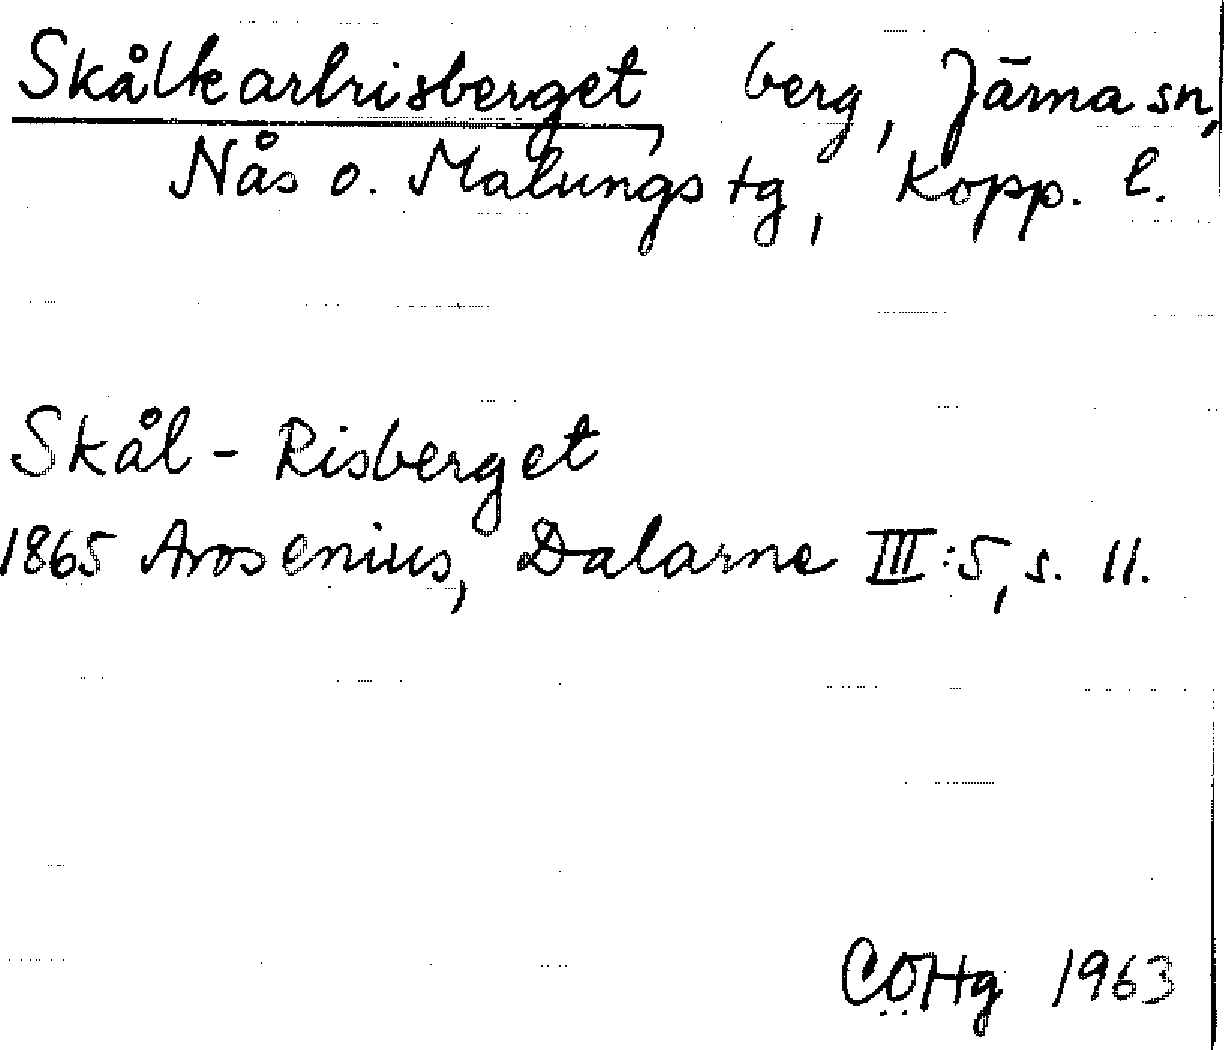 Skålkarlrisberget, berg, Järna sn,
Nås o. Malungs tg, Kopp. l.
Skål-Risberget
1865 Arosenius, Dalarne III:5, s. 11.
CÖHg 1963